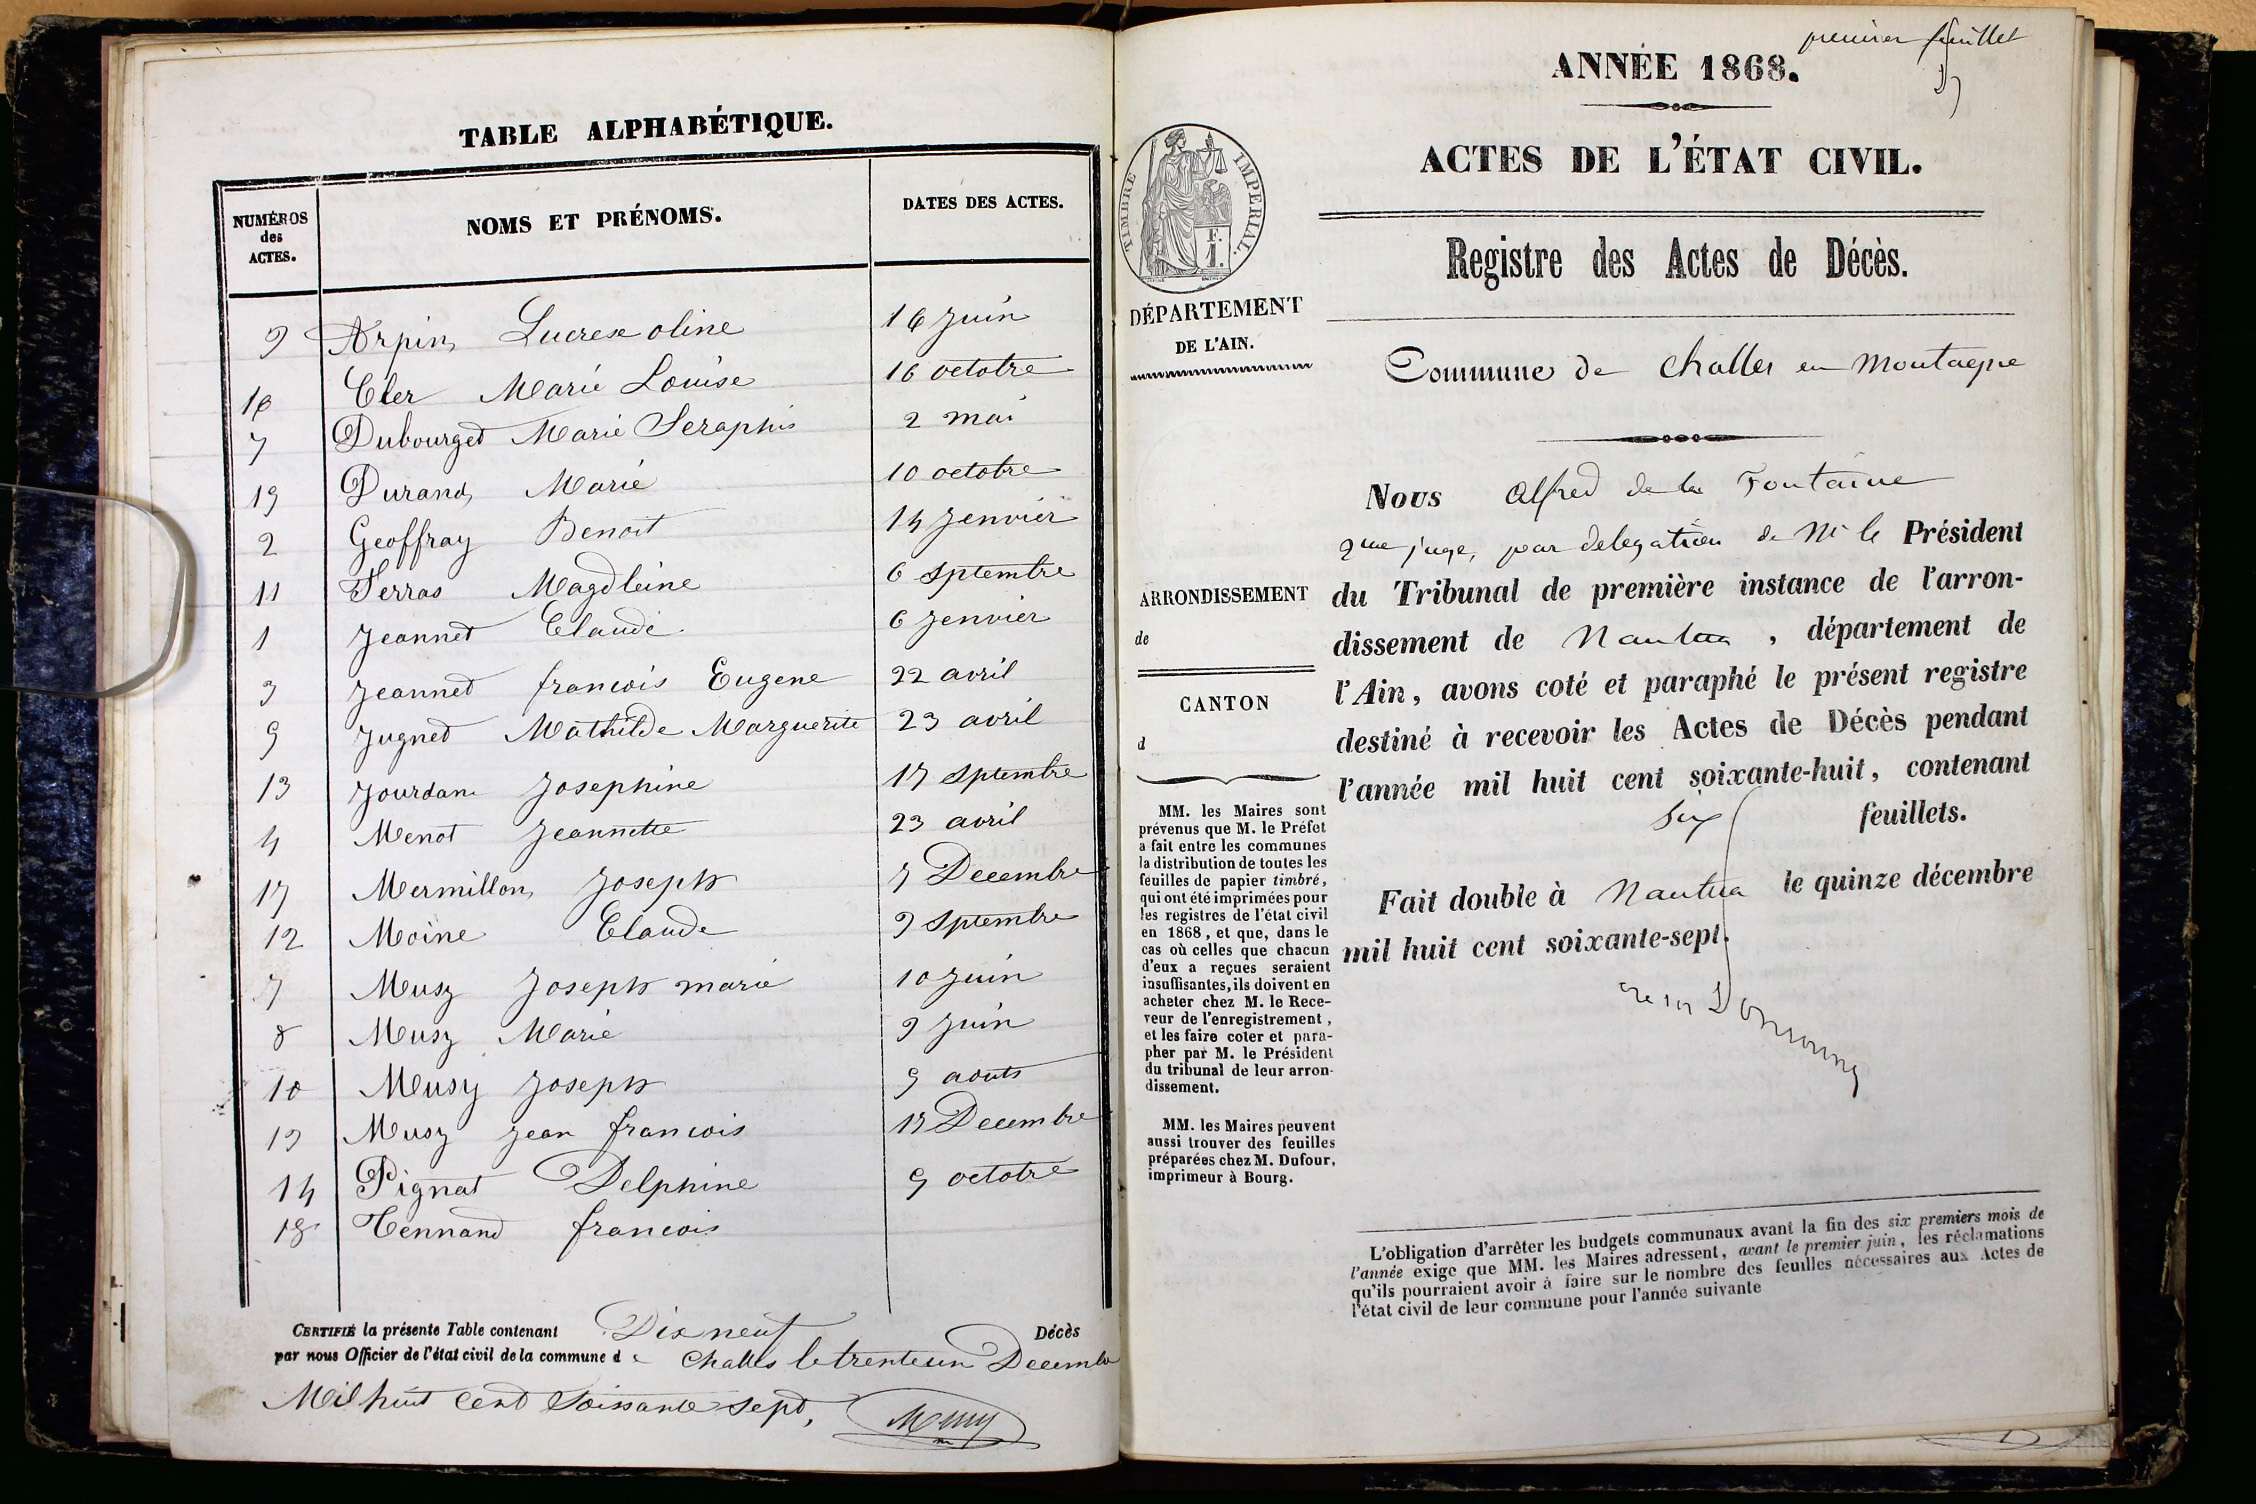 TABLE ALPHABÉTIQUE.
NUMÉROS des ACTES. NOMS ET PRÉNOMS. DATES DES ACTES.
9 Arpin 16 juin
16 Cler Marie Louise 16 octobre
7 Dubourget Marie Seraphis 2 mai
19 Durand Marie 10 octobre
2 Geoffray Benoit 14 Jenvier
11 Serras Magdleine 6 Sptembre
1 Jeannet Claude 6 Jenvier
3 Jeannet francois Eugene 22 avril
5 Jugnet Mathilde Marguerite 23 avril
13 Jourdan Josephine 17 Sptembre
4 Menot Jeannette 23 avril
17 Mermillon Joseph 7 Decembre
12 Moine Claude 9 Sptembre
7 Musy Joseph marie 10 Juin
8 Musy Marie 9 Juin
10 Musy Joseph 5 aouts
19 Musy Jean francois 17 Decembre
14 Pignat Delphine 5 octobre
18 Tennand francois
CERTIFIÉ la présente Table contenant Dix neuf Décès
par nous Officier de l'état civil de la commune de Challes le trenteun Decembre
Mil huit Cent Soissante Sept, Musy
premier feuillet
ANNÉE 1868.
ACTES DE L'ÉTAT CIVIL.
TIMBRE IMPERIAL.
F.
1.
Registre des Actes de Décès.
DÉPARTEMENT
DE L'AIN.
Commune de Challes en Montagne
Nous Alfred de la Fontaine
juge, par delegation de Mr le Président
du Tribunal de première instance de l'arron-
dissement de Nantua, département de
l'Ain, avons coté et paraphé le présent registre
destiné à recevoir les Actes de Décès pendant
l'année mil huit cent soixante-huit, contenant
Six feuillets.
Fait double à Nantua le quinze décembre
mil huit cent soixante-sept.
ARRONDISSEMENT
de
CANTON
d
MM. les Maires sont
prévenus que M. le Préfet
a fait entre les communes
la distribution de toutes les
feuilles de papier timbré,
qui ont été imprimées pour
les registres de l'état civil
en 1868, et que, dans le
cas où celles que chacun
d'eux a reçues seraient
insuffisantes, ils doivent en
acheter chez M. le Rece-
veur de l'enregistrement,
et les faire coter et para-
pher par M. le Président
du tribunal de leur arron-
dissement.
MM. les Maires peuvent
aussi trouver des feuilles
préparées chez M. Dufour,
imprimeur à Bourg.
L'obligation d'arrêter les budgets communaux avant la fin des six premiers mois de
l'année exige que MM. les Maires adressent, avant le premier juin, les réclamations
qu'ils pourraient avoir à faire sur le nombre des feuilles nécessaires aux Actes de
l'état civil de leur commune pour l'année suivante